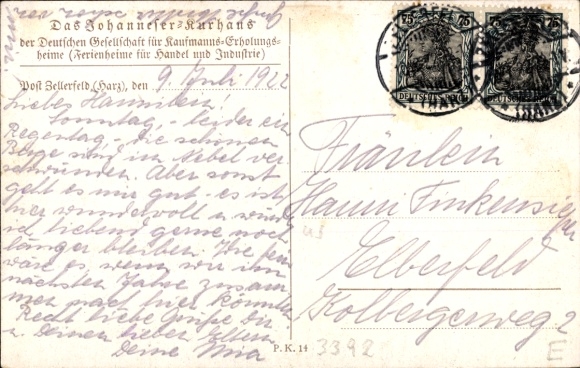 Das Johanneser-Kurhaus
der Deutschen Gesellschaft für Kaufmanns-Erholungs-
heime (Ferienheime für Handel und Industrie)
Post Zellerfeld (Harz), den 9 Juli 1922
Liebes Hannchen!
Sonntag, leider ein
Regentag, die schönen
Berge sind im Nebel ver
schwunden. Aber sonst
geht es mir gut - es ist
hier wundervoll u. würde
ich liebend gerne noch
länger bleiben. Wie fein
wäre es wenn wir im
nächsten Jahre zusam
men nach hier könnten
Recht liebe Grüße Dir
u. Deinen lieben Eltern
Deine Mia
P. K. 14
75 75
DEUTSCHES REICH
Fräulein
Hanni Finkensieper
Elberfeld
Kolbergerweg 2
3392
E